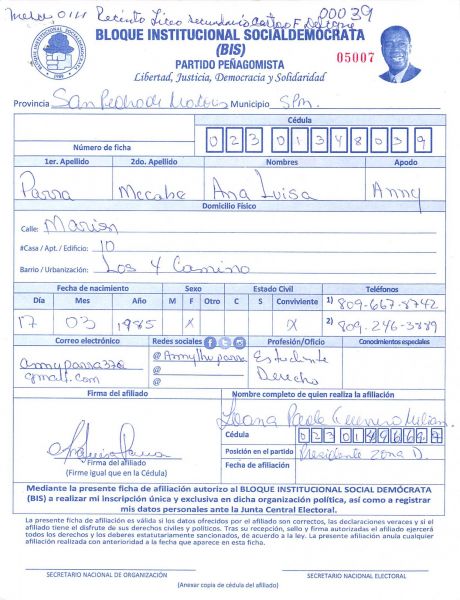 Mesa, 0111 Recinto Liceo Secundario 00039
BLOQUE INSTITUCIONAL SOCIALDEMÓCRATA
(BIS)
05007
PARTIDO PEÑAGOMISTA
Libertad, Justicia, Democracia y Solidaridad
Provincia San Pedro de Macoris Municipio SPM.
Cédula
Número de ficha 02301348039
1er. Apellido 2do. Apellido Nombres Apodo
Parra Mccabe Ana Luisa Anny
Domicilio Físico
Calle:
#Casa / Apt. / Edificio: 10
Barrio / Urbanización: Los 4 Camino
Fecha de nacimiento Sexo Estado Civil Teléfonos
Día Mes Año M F Otro C S Conviviente 1) 809-667-8742
17 03 1985 X X 2) 809-246-3889
Correo electrónico Redes sociales Profesión/Oficio Conocimientos especiales
annyparra37@ @ Estudiante
gmail.com @ Derecho
@
Firma del afiliado Nombre completo de quien realiza la afiliación
Cédula
Firma del afiliado Posición en el partido Presidente Zona D.
(Firme igual que en la Cédula) Fecha de afiliación
Mediante la presente ficha de afiliación autorizo al BLOQUE INSTITUCIONAL SOCIAL DEMÓCRATA
(BIS) a realizar mi inscripción única y exclusiva en dicha organización política, así como a registrar
mis datos personales ante la Junta Central Electoral.
La presente ficha de afiliación es válida si los datos ofrecidos por el afiliado son correctos, las declaraciones veraces y si el
afiliado tiene el disfrute de sus derechos civiles y políticos. Tras su recepción, sello y firma autorizadas el afiliado ejercerá
todos los derechos y los deberes estatutariamente sancionados, de acuerdo a la ley. La presente afiliación anula cualquier
afiliación realizada con anterioridad a la fecha que aparece en esta ficha.
SECRETARIO NACIONAL DE ORGANIZACIÓN SECRETARIO NACIONAL ELECTORAL
(Anexar copia de cédula del afiliado)